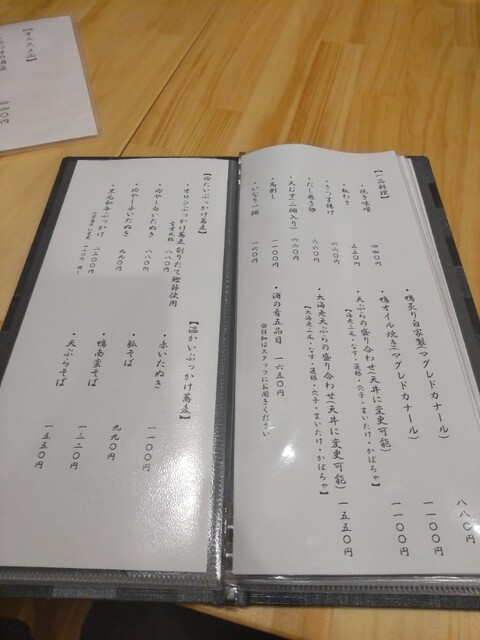 【一品料理】
・焼き味噌
・板わさ 五五〇円
・さつま揚げ 六六〇円
・だし巻き卵 六六〇円
・天むす(二個入り) 六六〇円
・馬刺し 一一〇〇円
・いなり一個 一六〇円
・鴨炙り自家製(マグレドカナール) 八八〇円
・鴨オイル焼き(マグレドカナール) 一一〇〇円
・天ぷらの盛り合わせ(天丼に変更可能) 一一〇〇円
【海老二尾・なす・蓮根・穴子・まいたけ・かぼちゃ】
・大海老天ぷらの盛り合わせ(天丼に変更可能) 一五五〇円
【大海老二尾・なす・蓮根・穴子・まいたけ・かぼちゃ】
・酒の肴五品目 一六五〇円
※詳細はスタッフにお聞きください
【冷たいぶっかけ蕎麦】
・オロシぶっかけ蕎麦削りたて鰹節使用
八八〇円
・冷やし白いたぬき 八八〇円
・冷やし赤いたぬき 九九〇円
・黒毛和牛ぶっかけ 二二〇〇円
【温かいぶっかけ蕎麦】
・赤いたぬき 一一〇〇円
・狐そば 九九〇円
・鴨南蛮そば 一三二〇円
・天ぷらそば 一五五〇円